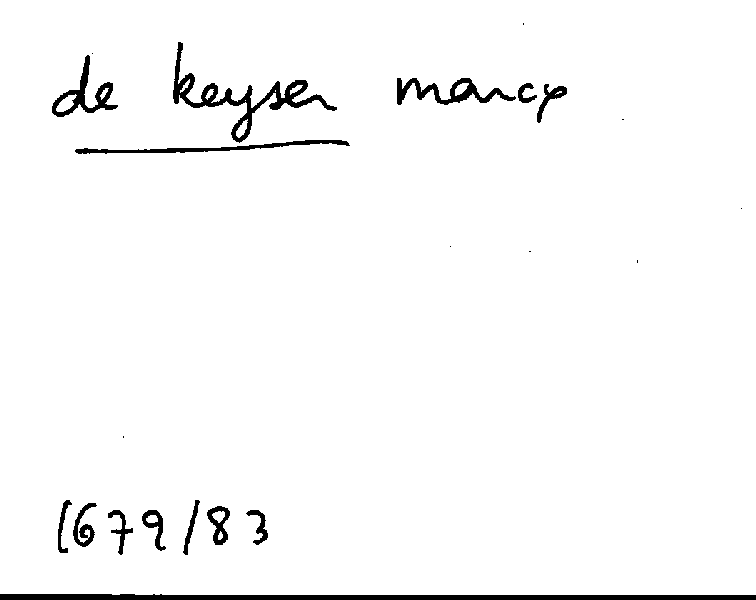 de keyser marcy
1679/83